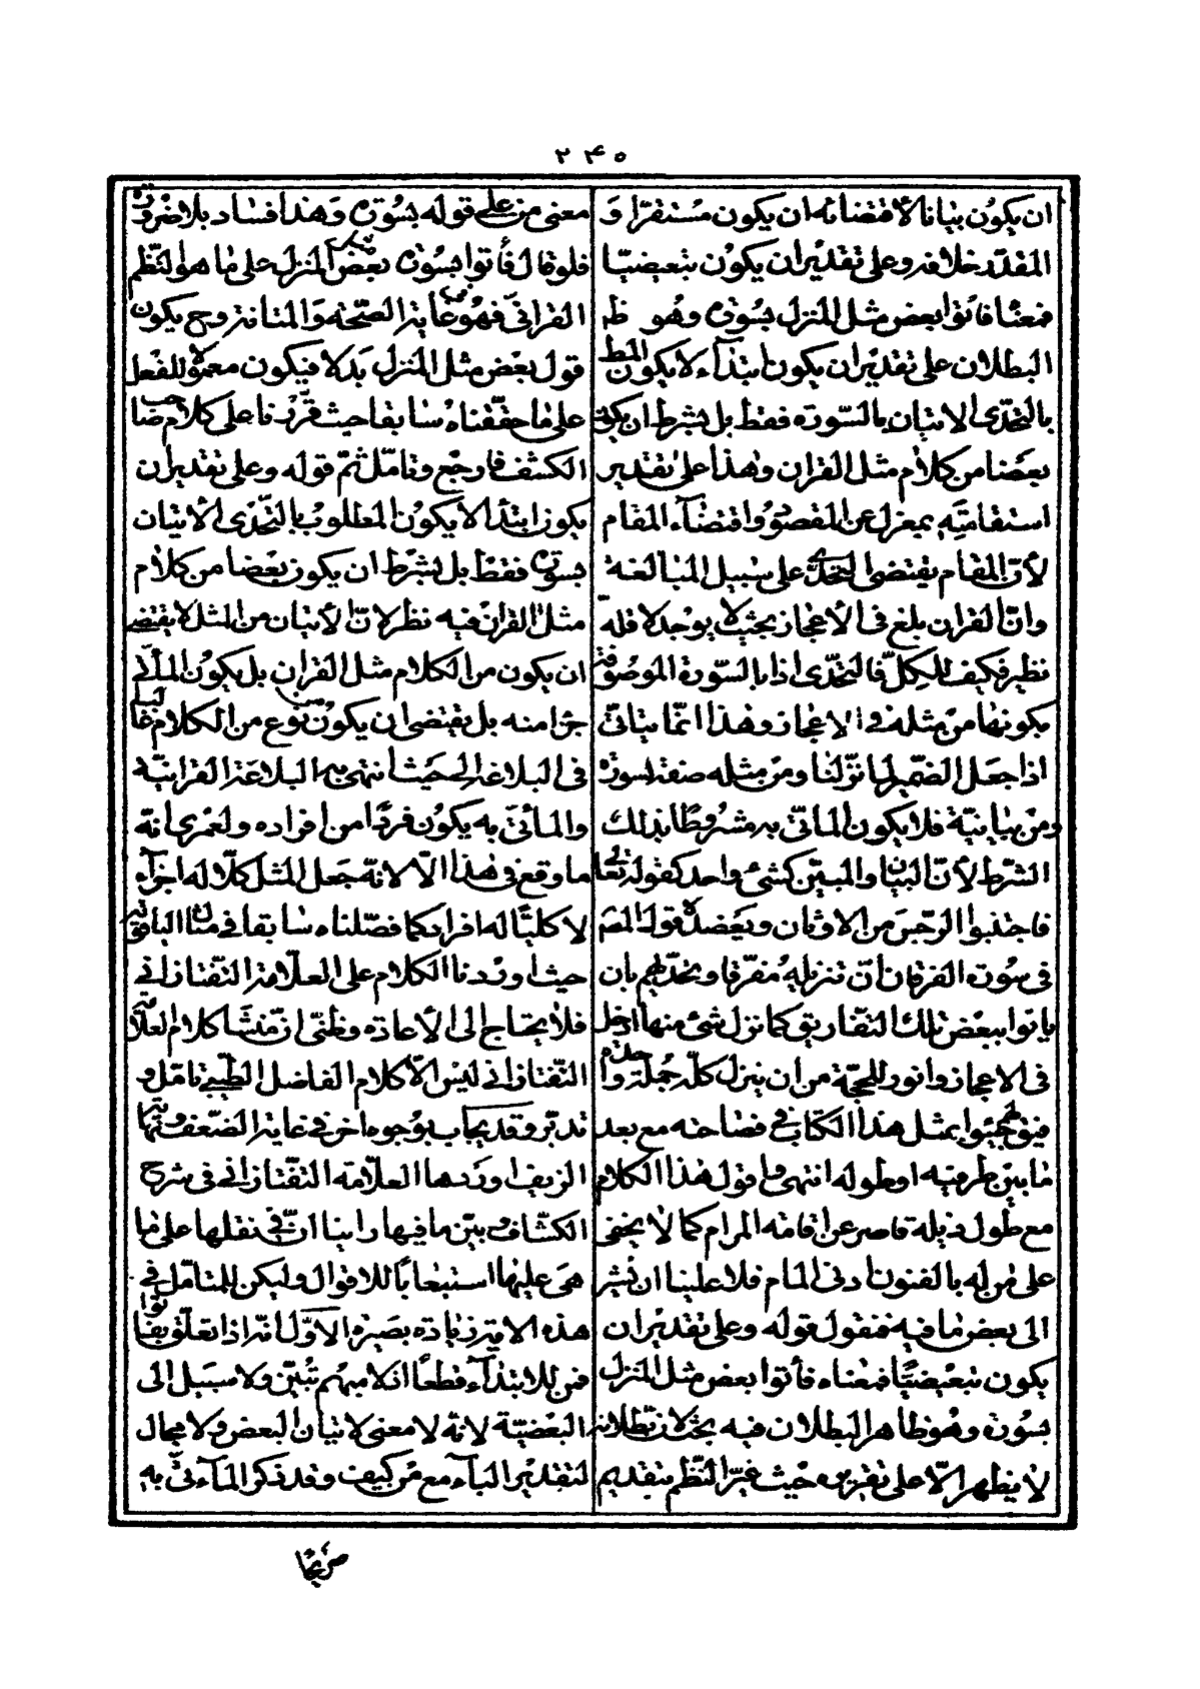 ٢٤٥
ان يكون بيانا لاقتضائه ان يكون مستقرا و
المقدر خلافه وعلى تقدير ان يكون تبعيضيا
فمعناه فاتوا بعض مثل المنزل بسورة وهو ظه
البطلان على تقدير ان يكون ابتداء لا يكون المط
بالتحدى الاتيان بالسورة فقط بل بشرط ان يكون
بعضا من كلام مثل القران وهذا على تقدير
استقامته بمعزل عن المقصود واقتضاء المقام
لأن المقام يقتضى التحدى على سبيل المبالغة
وان القران بلغ فى الأعجاز بحيث لا يوجد لاقله
نظير فكيف للكل فالتحدى اذا بالسورة الموصوفة
بكونها من مثله فى الاعجاز وهذا انما يتاتى
اذا جعل الضمير لما نزلنا ومن مثله صفة لسورة
ومن بيانية فلا يكون الماتى به مشروطا بذلك
الشرط لأن البيان والمبين كشئ واحد كقوله تعالى
فاجتنبوا الرجس من الاوثان ويعضده قول المص
فى سورة الفرقان ان تنزيله مفرقا وتحديهم بان
ياتوا ببعض تلك التفاريق كما نزل شئ منها ادخل
فى الاعجاز وانور للحجة من ان ينزل كله جملة واحدة
فيق جيئوا بمثل هذا الكتاب فى فصاحته مع بعد
ما بين طرفيه او طوله انتهى واقول هذا الكلام
مع طول ذيله قاصر عن اقامة المرام كما لا يخفى
على من له بالفنون ادنى المام فلا علينا ان نشير
الى بعض ما فيه فنقول قوله وعلى تقدير ان
يكون تبعيضيا فمعناه فأتوا بعض مثل المنزل
بسورة وهو ظاهر البطلان فيه بحث لان بطلانه
لا يظهر الا على تقرير حيث غير النظم بتقديم
معنى من على قوله بسورة وهذا فساد بلا ضرورة
فلو قال فأتوا بسورة بعض المنزل على ما هو النظم
القرانى فهو غاية الصحة والمتانة وح يكون
قول بعض مثل المنزل بدلا فيكون معمولا للفعل
على ما حققناه سابقا حيث قررنا على كلام صاحب
الكشف فارجع وتامل ثم قوله وعلى تقدير ان
يكون ابتداء لا يكون المطلوب بالتحدى الأتيان
بسورة فقط بل بشرط ان يكون بعضا من كلام
مثل القران فيه نظر لان الأتيان من المثل لا يقتضى
ان يكون من الكلام مثل القران بل يكون المأتى
جزا منه بل يقتضى ان يكون من نوع من الكلام غالبا
فى البلاغة الى حيث انتهى به البلاغة القرانية
والمأتى به يكون فردا من افراده ولعمرى انه
ما وقع فى هذا الا لانه جعل المثل كلا له اجزاء
لا كليا له افراد كما فصلناه سابقا فى مثال الياقوتة
حيث اوردنا الكلام على العلامة التفتازانى
فلا يحتاج الى الأعادة وظنى ان منشأ كلام العلامة
التفتازانى ليس الا كلام الفاضل الطيبى تامل و
تدبر وقد يجاب بوجوه اخر فى غاية الضعف ونهاية
الزيف اوردها العلامة التفتازانى فى شرح
الكشاف وبين ما فيها راينا ان فى نقلها على ما
هى عليها استيعابا للاقوال وليكن للمتامل فى
هذه الامة زيادة بصيرة الأول انه اذا تعلق بفأتوا
فمن للابتداء قطعا اذ لا مبهم تبين ولا سبيل الى
البعضية لانه لا معنى لاتيان البعض ولا مجال
لتقدير الباء مع من كيف وقد ذكر المأتى به
صريحا